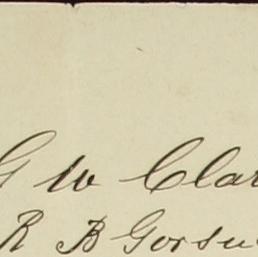 G W Clar
R B Gorsu